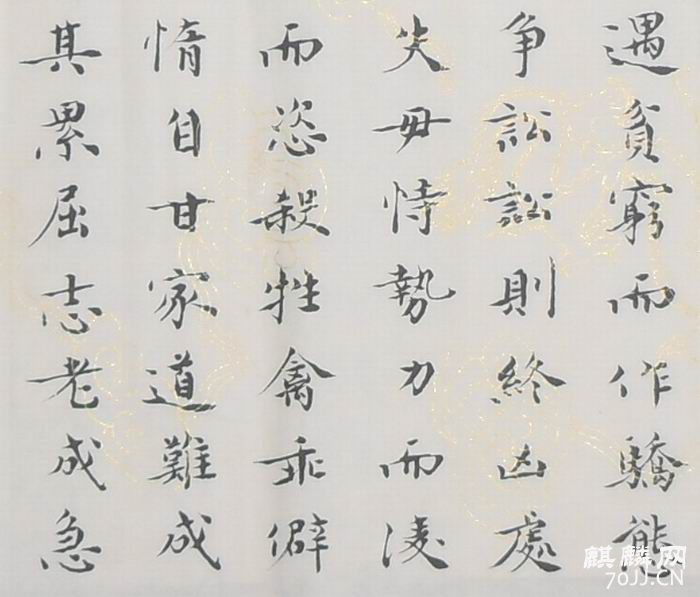 遇貧窮而作驕態
争訟訟則終凶處
失毋恃勢力而淩
而恣殺牲禽乖僻
惰自甘家道難成
其累屈志老成急
麒麟网
70JJ.CN